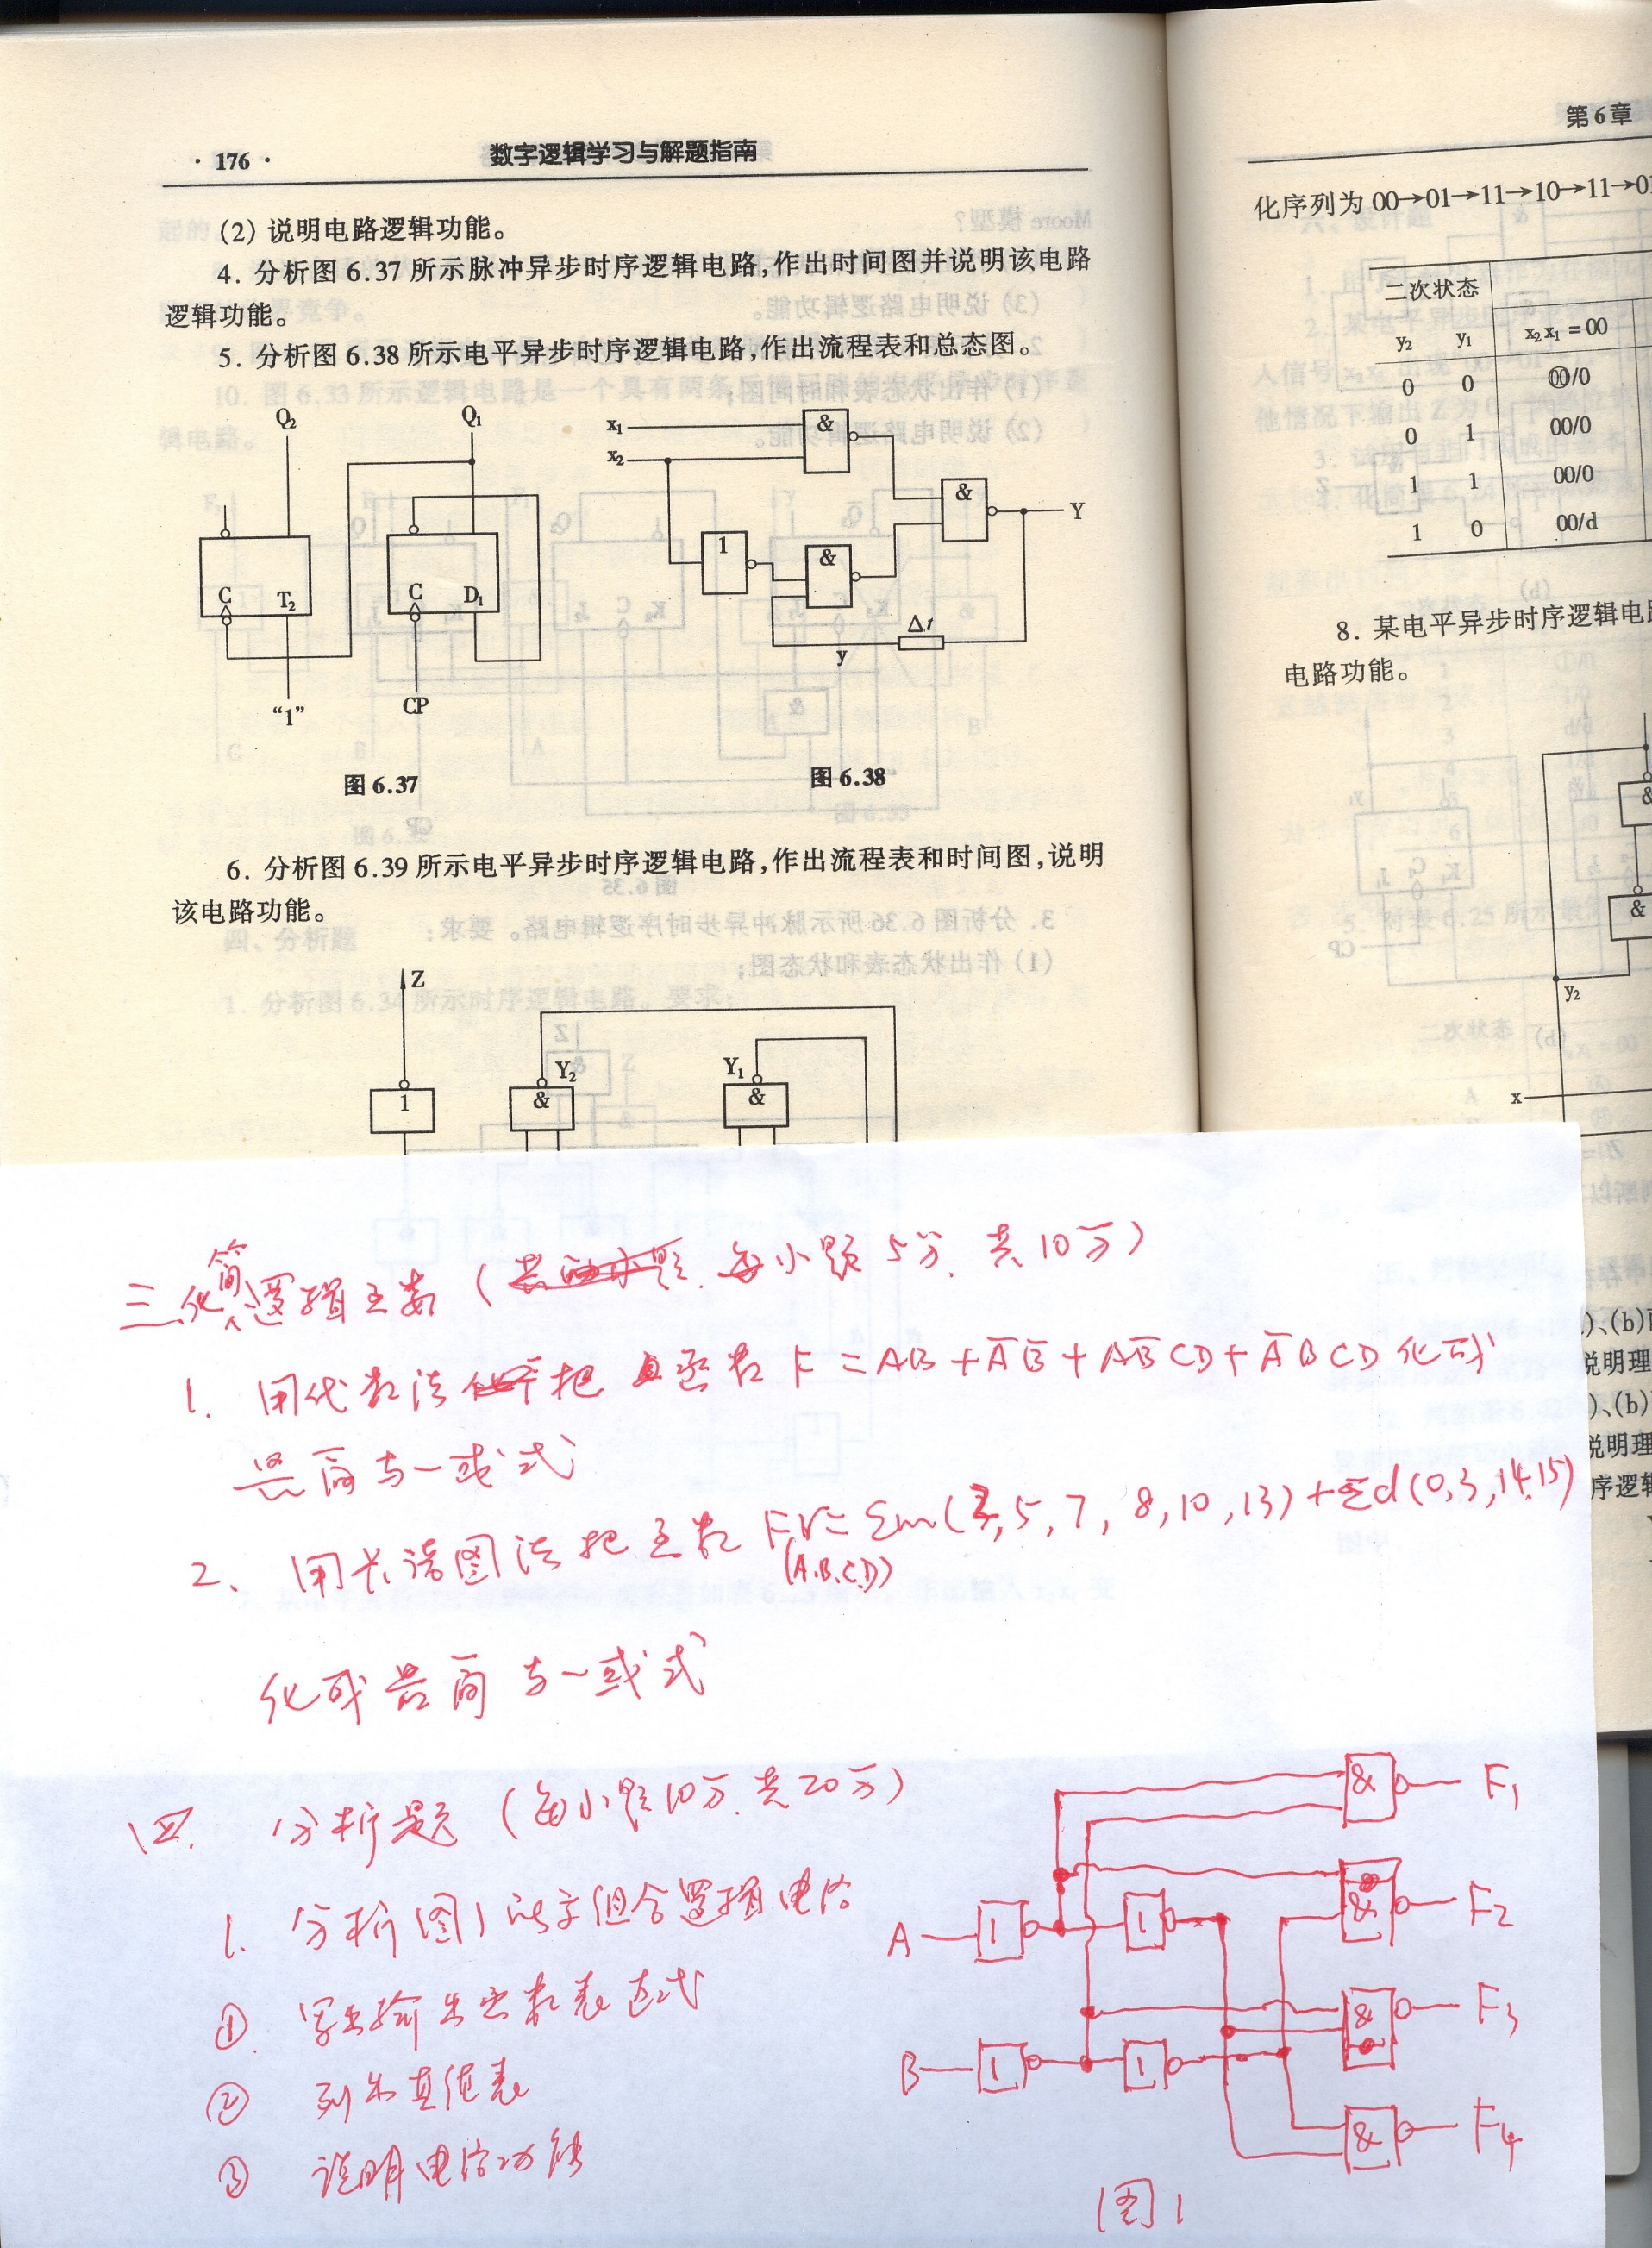 · 176 ·
数字逻辑学习与解题指南
(2) 说明电路逻辑功能。
4. 分析图 6.37 所示脉冲异步时序逻辑电路,作出时间图并说明该电路
逻辑功能。
5. 分析图 6.38 所示电平异步时序逻辑电路,作出流程表和总态图。
Q₂ Q₁
C T₂ C D₁
"1" CP
图 6.37
x₁
x₂
& & 1 & Y
Δt
y
图 6.38
6. 分析图 6.39 所示电平异步时序逻辑电路,作出流程表和时间图,说明
该电路功能。
Z
Y₂ Y₁
1 & &
第 6 章
化序列为 00→01→11→10→11→01
二次状态
y₂ y₁ x₂x₁ = 00
0 0 ⓪⓪/0
0 1 00/0
1 1 00/0
1 0 00/d
8. 某电平异步时序逻辑电
电路功能。
&
&
y₂
x
)、(b)
说明理
)、(b)
说明理
序逻辑
三.化简逻辑函数 (每小题5分.共10分)
1. 用代数法把函数 F=AB+A̅B̅+AB̅CD+A̅BCD 化成
最简与一或式
2、用卡诺图法把函数 F(A,B,C,D)=Σm(2,5,7,8,10,13)+Σd(0,3,14,15)
化成最简与一或式
四. 分析题 (每小题10分.共20分)
1. 分析图1所示组合逻辑电路
① 写出输出函数表达式
② 列出真值表
③ 说明电路功能
& F₁
A 1 1 & F₂
& F₃
B 1 1
& F₄
图1